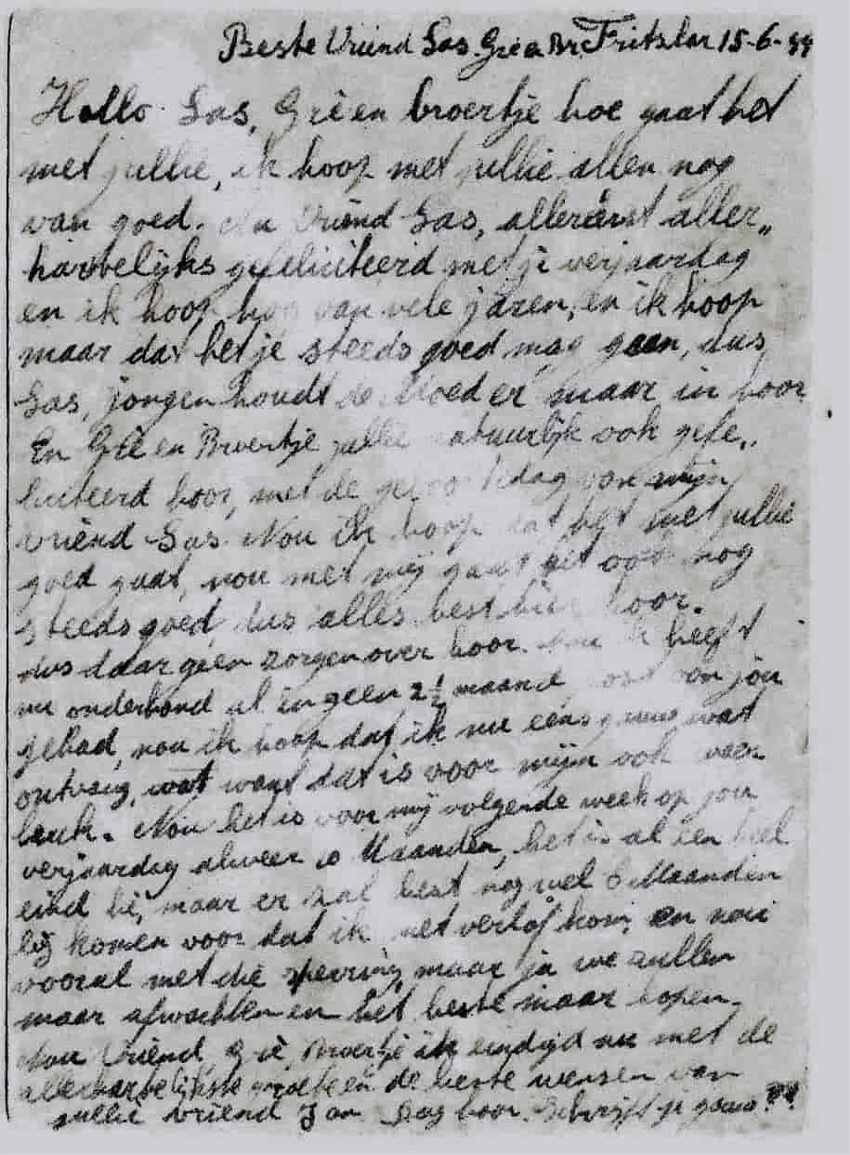 Beste Vriend Sas. Grè en Br. Fritzlar 15-6-44
Hallo Sas, Grè en broertje hoe gaat het
met jullie, ik hoop met jullie allen nog
van goed. Nu Vriend Sas, allereerst aller„
hartelijks gefeliciteerd met je verjaardag
en ik hoop nog van vele jaren, en ik hoop
maar dat het je steeds goed mag gaan, dus
Sas, jongen houdt de Moed er maar in hoor
En Grè en Broertje jullie natuurlijk ook gefe„
liciteerd hoor, met de geboortedag van mijn
vriend Sas. Nou ik hoop dat het met jullie
goed gaat, nou met mij gaat het ook nog
steeds goed, dus alles best hier hoor.
dus daar geen zorgen over hoor. Nou ik heeft
nu onderhand al in geen 2½ maand post van jou
gehad, nou ik hoop dat ik nu eens gauw wat
ontvang, wat want dat is voor mijn ook weer
leuk. Nou het is voor mij volgende week op jou
verjaardag alweer 10 Maanden, het is al een heel
eind hè, maar er zal best nog wel 6 Maanden
bij komen voor dat ik met verlof kom, en nou
vooral met die sperring, maar ja we zullen
maar afwachten en het beste maar hopen.
Nou Vriend, Grè, Broertje ik eindijd nu met de
allerhartelijkste groeten en de beste wensen van
jullie vriend Jan Dag hoor. Schrijft je gauw??